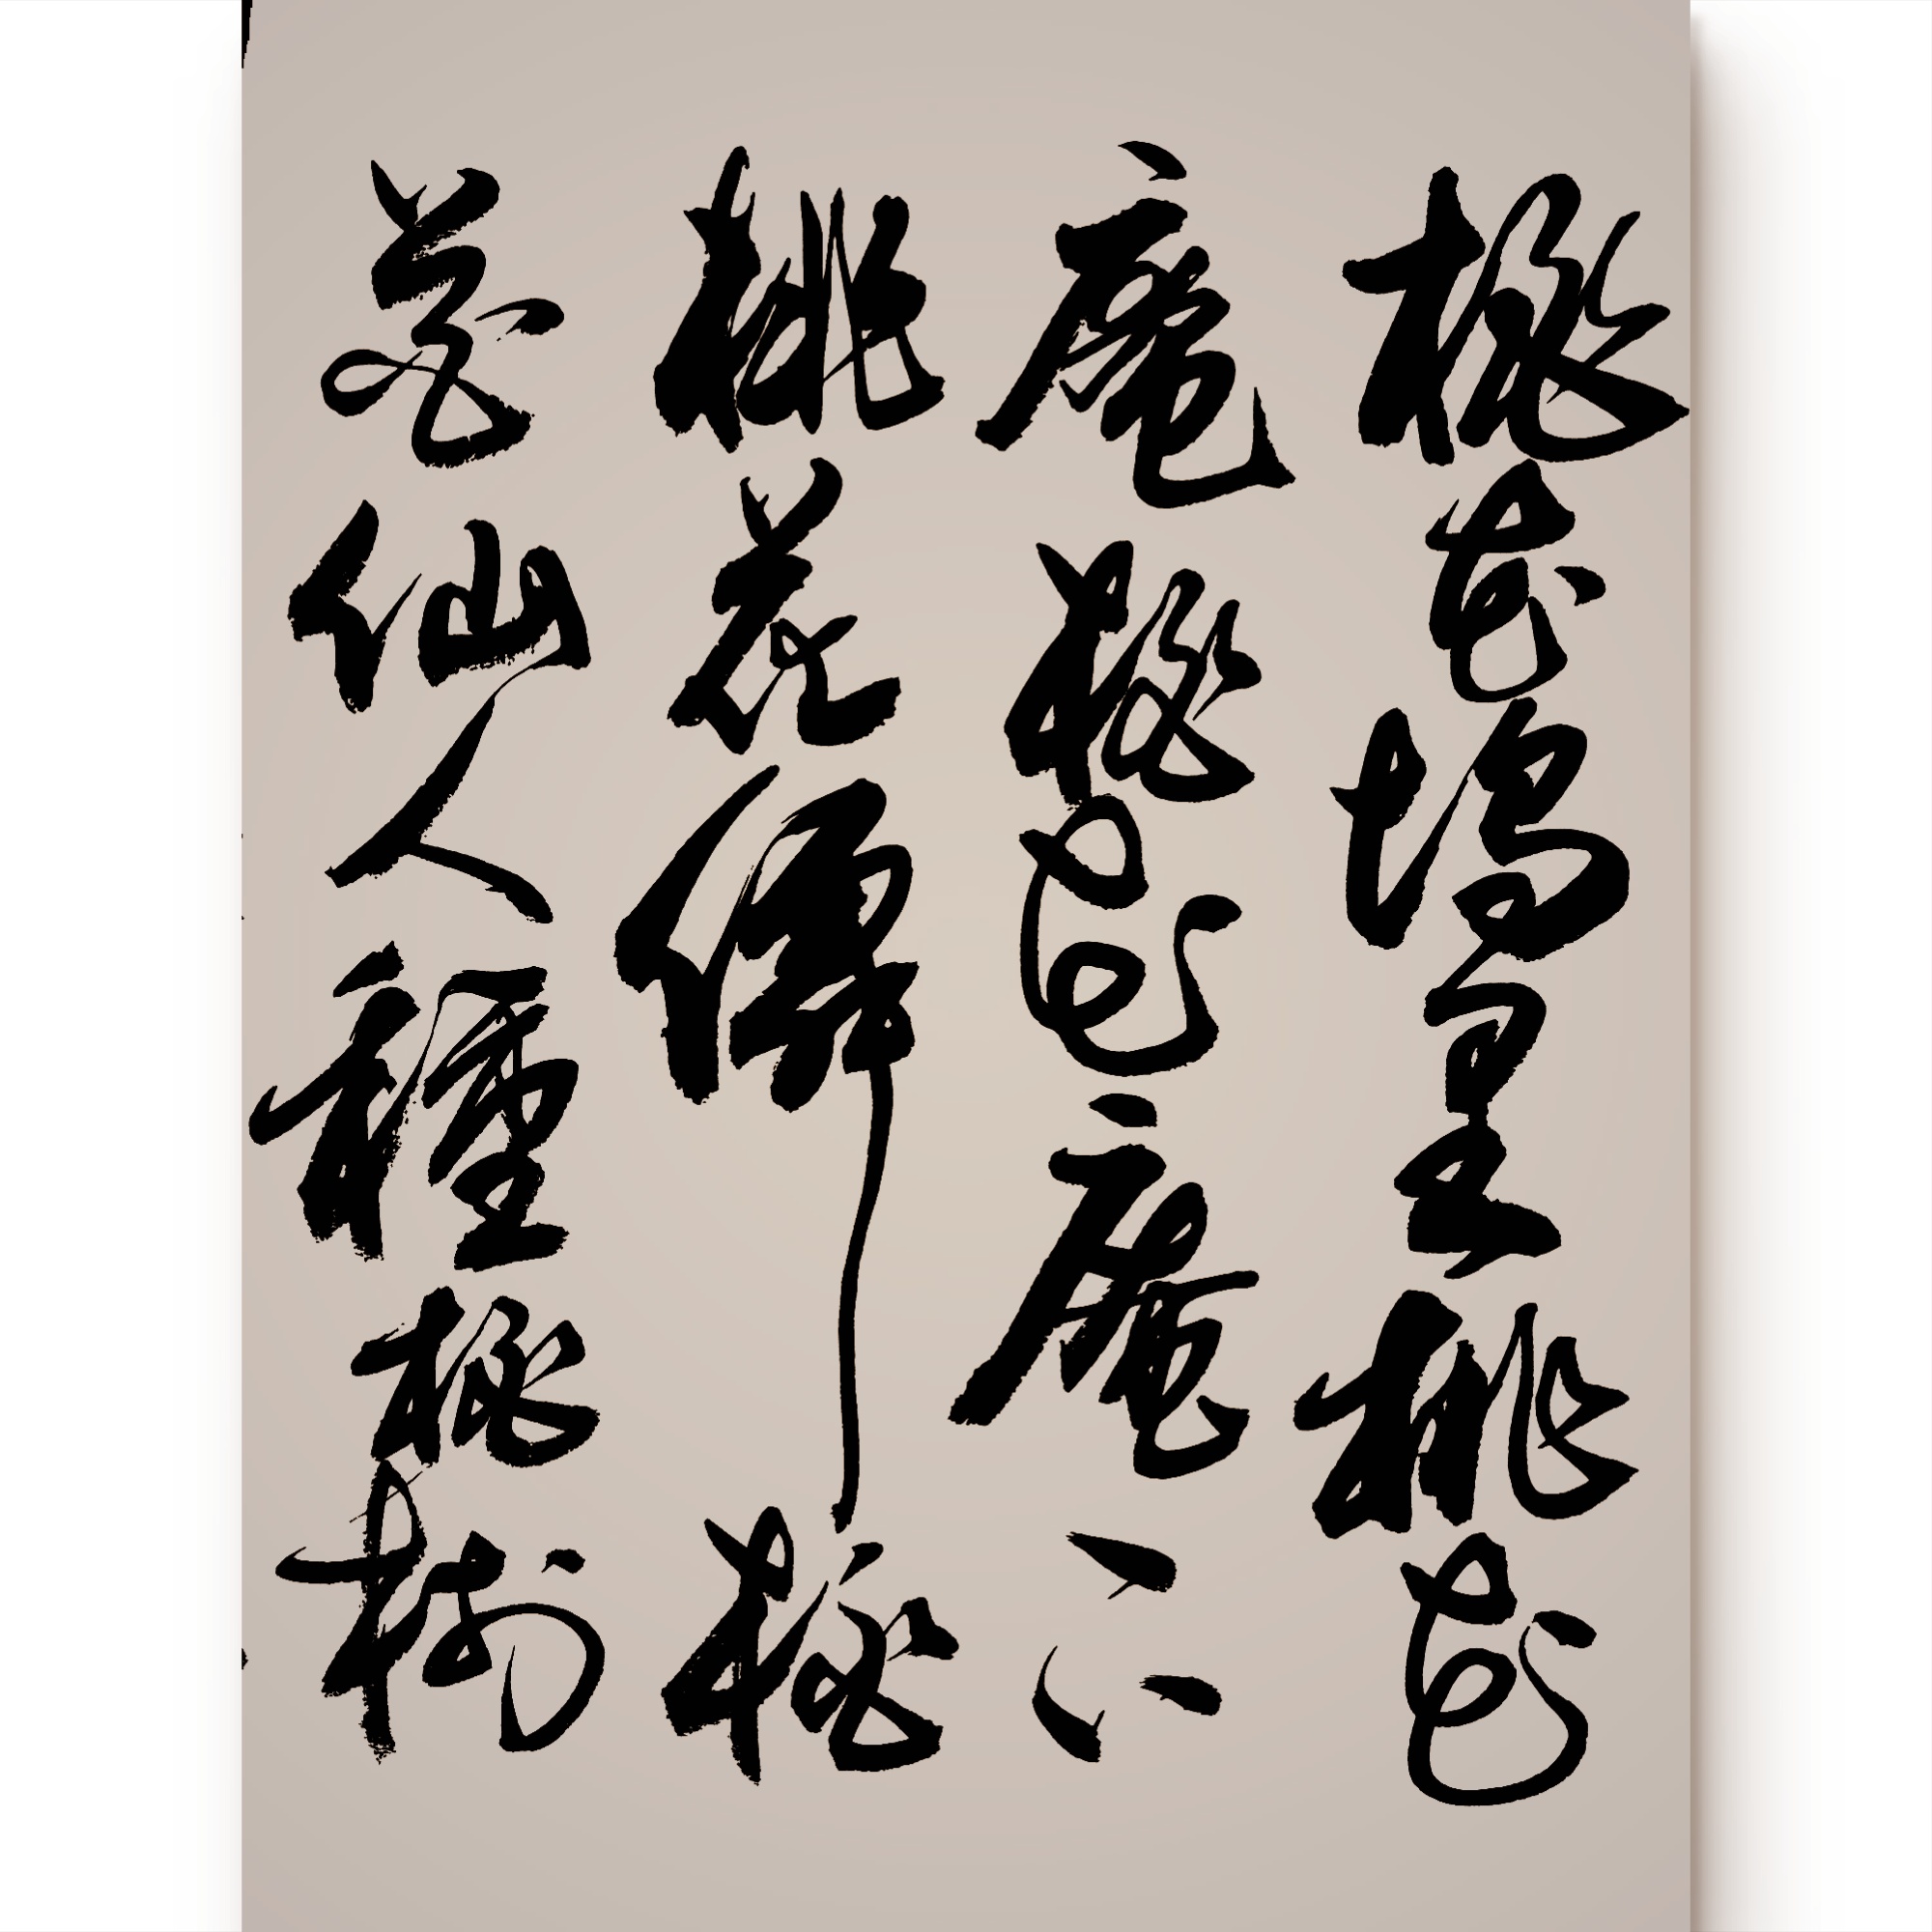 桃花塢里桃花
庵桃花庵下
桃花僊桃
花仙人種桃樹